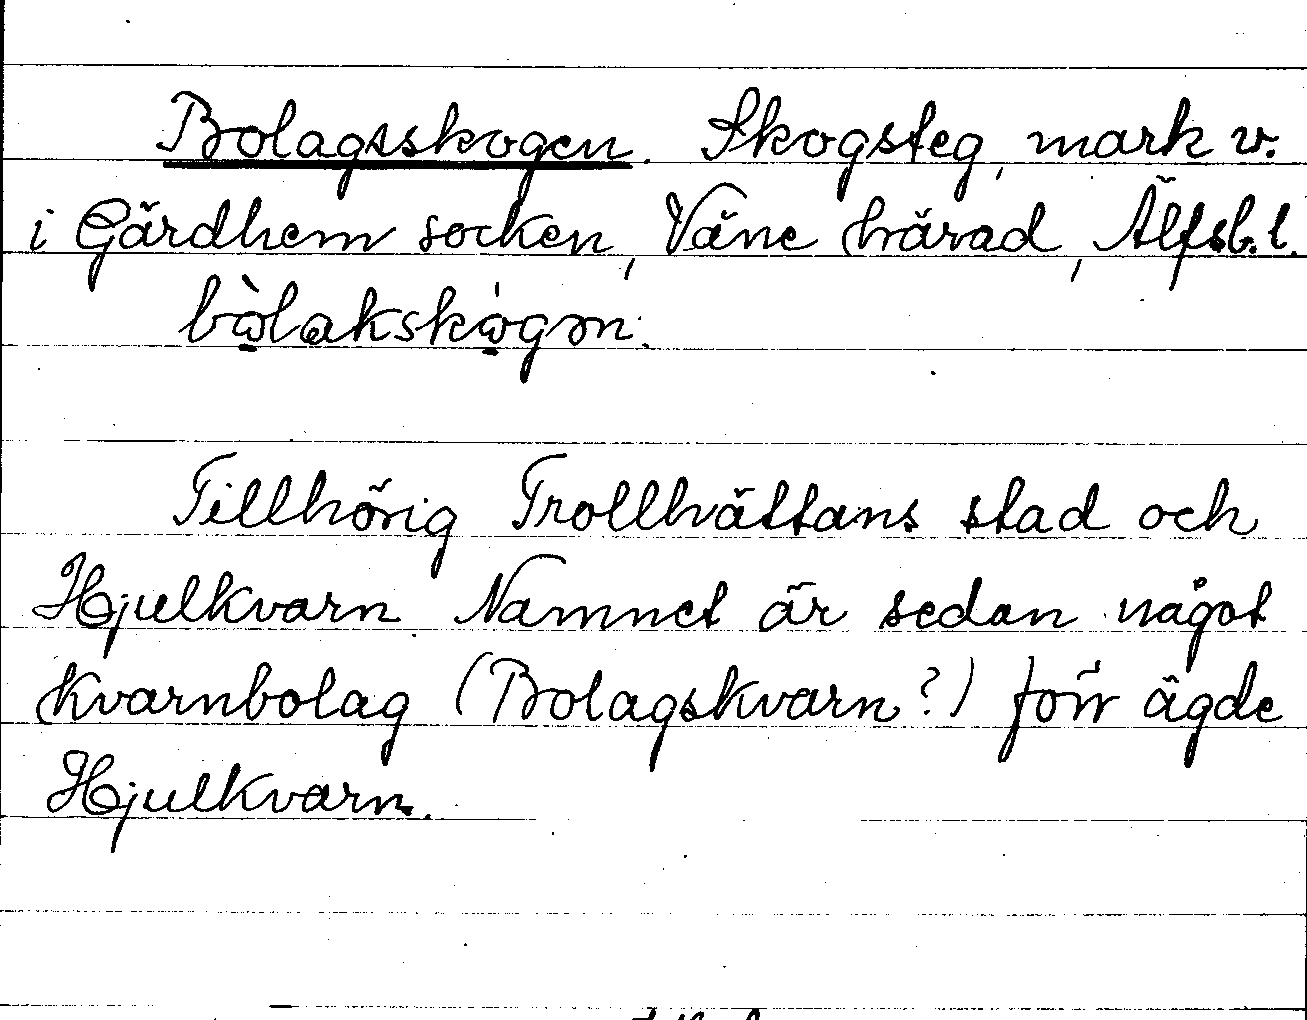 Bolagsskogen. Skogsteg, mark v.
i Gärdhem socken, Väne härad, Älfsb. l.
bòlakskógen.
Tillhörig Trollhättans stad och
Hjulkvarn Namnet är sedan något
kvarnbolag (Bolagskvarn?) förr ägde
Hjulkvarn.